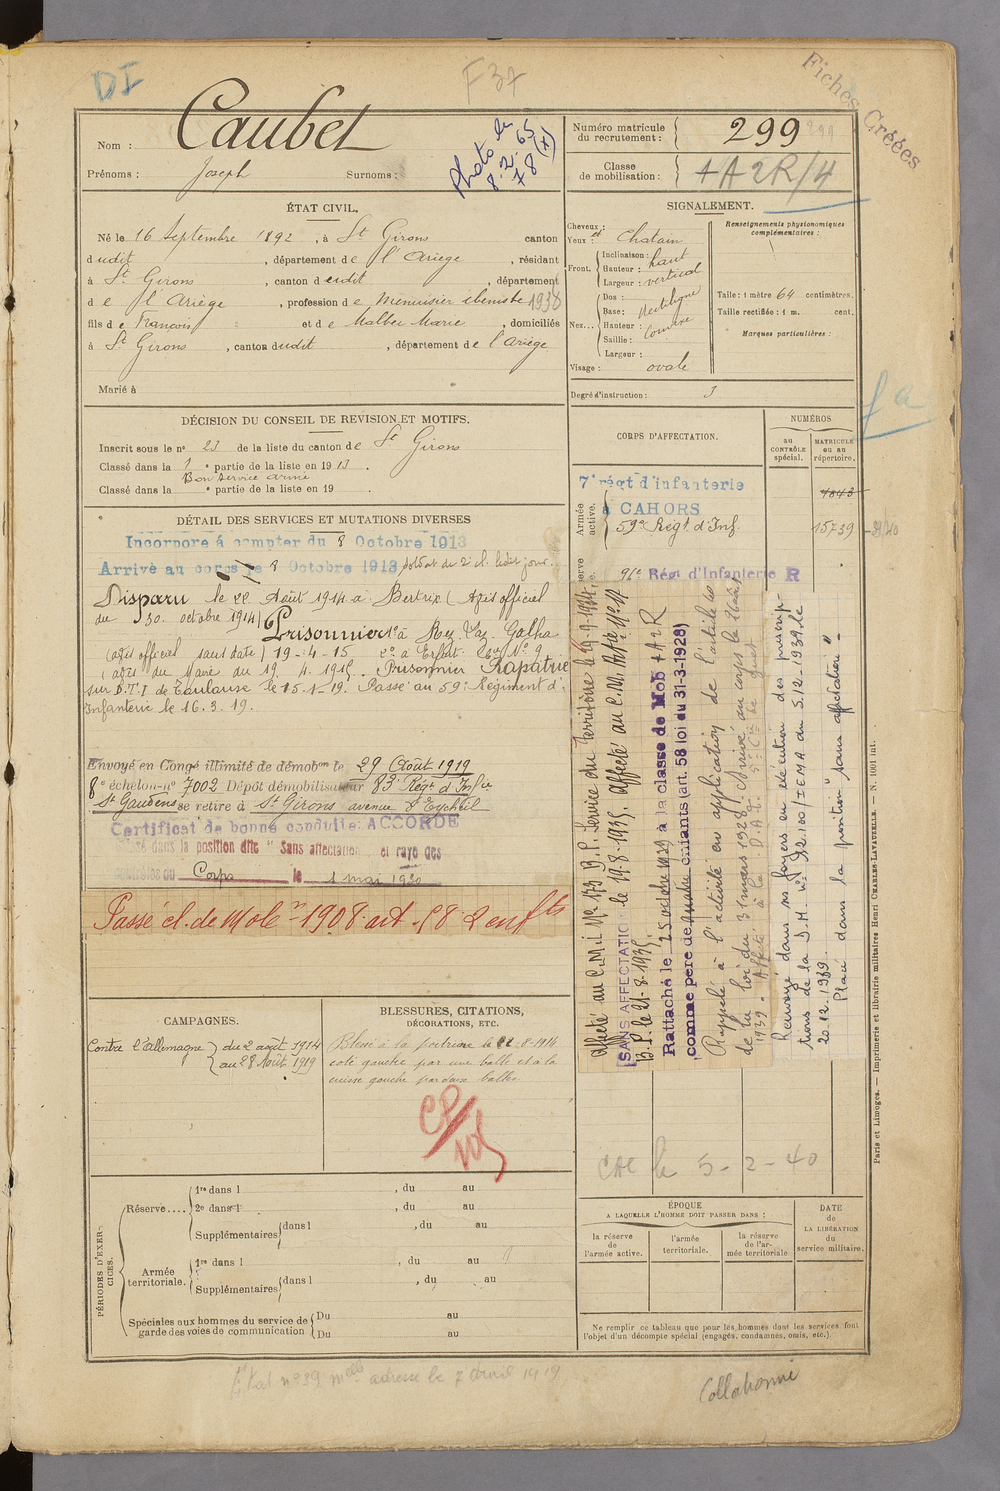 DI
F 37
Fiches Créées
Nom : Caubet
Prénoms : Joseph Surnoms :
Photo le
8.2.65
78 (+)
Numéro matricule du recrutement : 299
Classe de mobilisation : + A 2R/4
ÉTAT CIVIL.
Né le 16 Septembre 1892, à St Girons canton
dudit, département de l'Ariège, résidant
à St Girons, canton dudit, département
de l'Ariège, profession de Menuisier ébéniste 1938
fils de François et de Malbec Marie, domiciliés
à St Girons, canton dudit, département de l'Ariège
Marié à
SIGNALEMENT.
Cheveux : et
Yeux : Chatain
Front. Inclinaison : haut
Hauteur : vertical
Largeur :
Nez... Dos : rectiligne
Base :
Hauteur :
Saillie :
Largeur :
Visage : ovale
Renseignements physionomiques complémentaires :
Taille : 1 mètre 64 centimètres.
Taille rectifiée : 1 m. cent.
Marques particulières :
Degré d'instruction : 3
DÉCISION DU CONSEIL DE REVISION ET MOTIFS.
Inscrit sous le n° 23 de la liste du canton de St Girons
Classé dans la 1e partie de la liste en 1913.
Bon service armé
Classé dans la e partie de la liste en 19
CORPS D'AFFECTATION.
NUMÉROS
au CONTRÔLE spécial.
MATRICULE ou au répertoire.
Armée active.
7e régt d'infanterie
à CAHORS
4843
59e Régt d'Inf. 15739
91e Rég. d'Infanterie R
DÉTAIL DES SERVICES ET MUTATIONS DIVERSES
Incorporé à compter du 8 Octobre 1913
Arrivé au corps le 8 Octobre 1913, soldat de 2e cl. ledit jour.
Disparu le 22 Août 1914 à Bertrix (Avis officiel
du 30. octobre 1914) Prisonnier 1° à
(avis officiel sans date) 19-4-15 2° à Erfurt
(avis du Maire du 19.4.1915. Prisonnier Rapatrié
sur D.T.I de Toulouse le 15.1.19. Passé au 59e Régiment d'
Infanterie le 16.3.19.
Envoyé en Congé illimité de démobon le 29 Août 1919
8e échelon-n° 7002 Dépôt démobilisateur 83e Régt d'Infie
St Gaudens se retire à St Girons avenue d'Eycheil
Certificat de bonne conduite: ACCORDÉ
Classé dans la position dite "Sans affectation" et rayé des
contrôles du Corps le 1 mai 1930
Passé cl. de Mobon 1908 art. 58 2 enfts
affecté au C.M.I. N° 173 B.P. Service du Territoire le
SANS AFFECTATION le 19.8.1935. affecté au C.M. Artie N° 17
B.P. le 21.8.1935.
Rattaché le 25 octobre 1939 à la classe de Mob + A 2 R
comme père de quatre enfants (art. 58 loi du 31-3-1928)
Rappelé à l'activité en application de l'article 40
de la loi du 31 mars 1928. Arrivé au corps le
1939.
Renvoyé dans ses foyers en exécution des prescrip-
tions de la D.M. n° 92.100/IEMA du 5.12.1939 le
20.12.1939.
Placé dans la position "sans affectation"
CAMPAGNES.
Contre l'Allemagne du 2 août 1914
au 28 Août 1919
BLESSURES, CITATIONS,
DÉCORATIONS, ETC.
Blessé à la poitrine le 22-8-1914
coté gauche par une balle et à la
cuisse gauche par deux balles
le 5-2-40
PÉRIODES D'EXERCICES.
Réserve.... 1re dans l , du au
2e dans l , du au
Supplémentaires dans l , du au
Armée territoriale. 1re dans l , du au
Supplémentaires dans l , du au
Spéciales aux hommes du service de garde des voies de communication Du au
Du au
ÉPOQUE
A LAQUELLE L'HOMME DOIT PASSER DANS :
la réserve de l'armée active.
l'armée territoriale.
la réserve de l'armée territoriale
DATE de LA LIBÉRATION du service militaire.
Ne remplir ce tableau que pour les hommes dont les services font
l'objet d'un décompte spécial (engagés, condamnés, omis, etc.).
Paris et Limoges. — Imprimerie et librairie militaires Henri CHARLES-LAVAUZELLE. — N. 1001 int.
adresse le 7 Avril 1919
Collationné